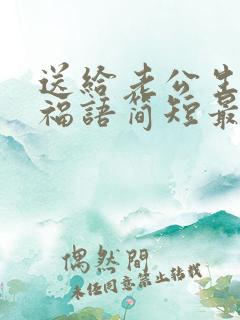 送给老公生
福語简短最
偶然間
未经同意禁止转载